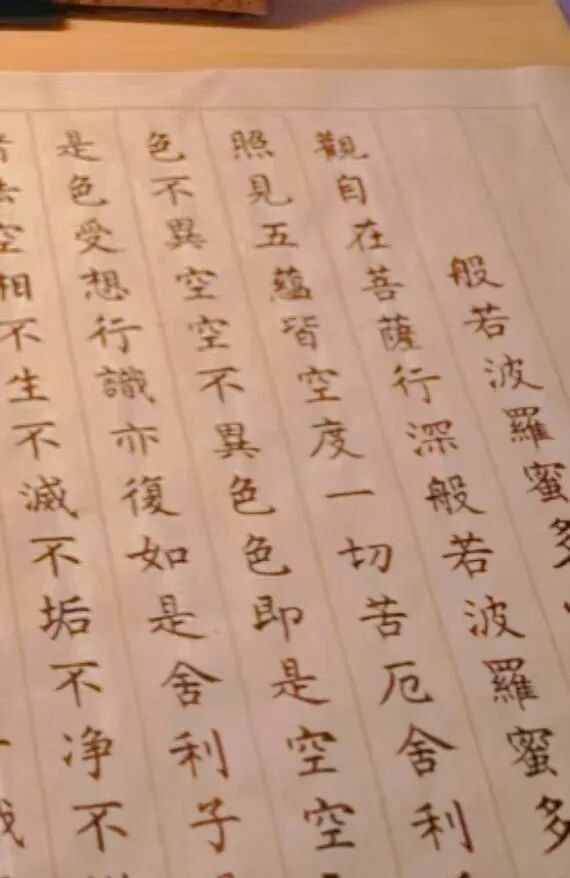 般若波羅蜜多
觀自在菩薩行深般若波羅蜜多
照見五蘊皆空度一切苦厄舍利
色不異空空不異色色即是空空
是色受想行識亦復如是舍利子
空相不生不滅不垢不净不